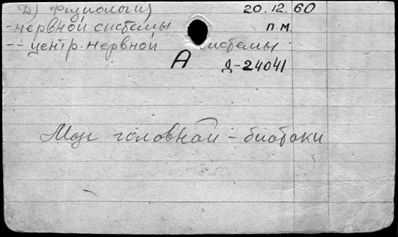 Д) физиология 20.12.60
- нервной системы п.м.
-- центр. нервной системы
А Д-24041
Мозг головной - биотоки